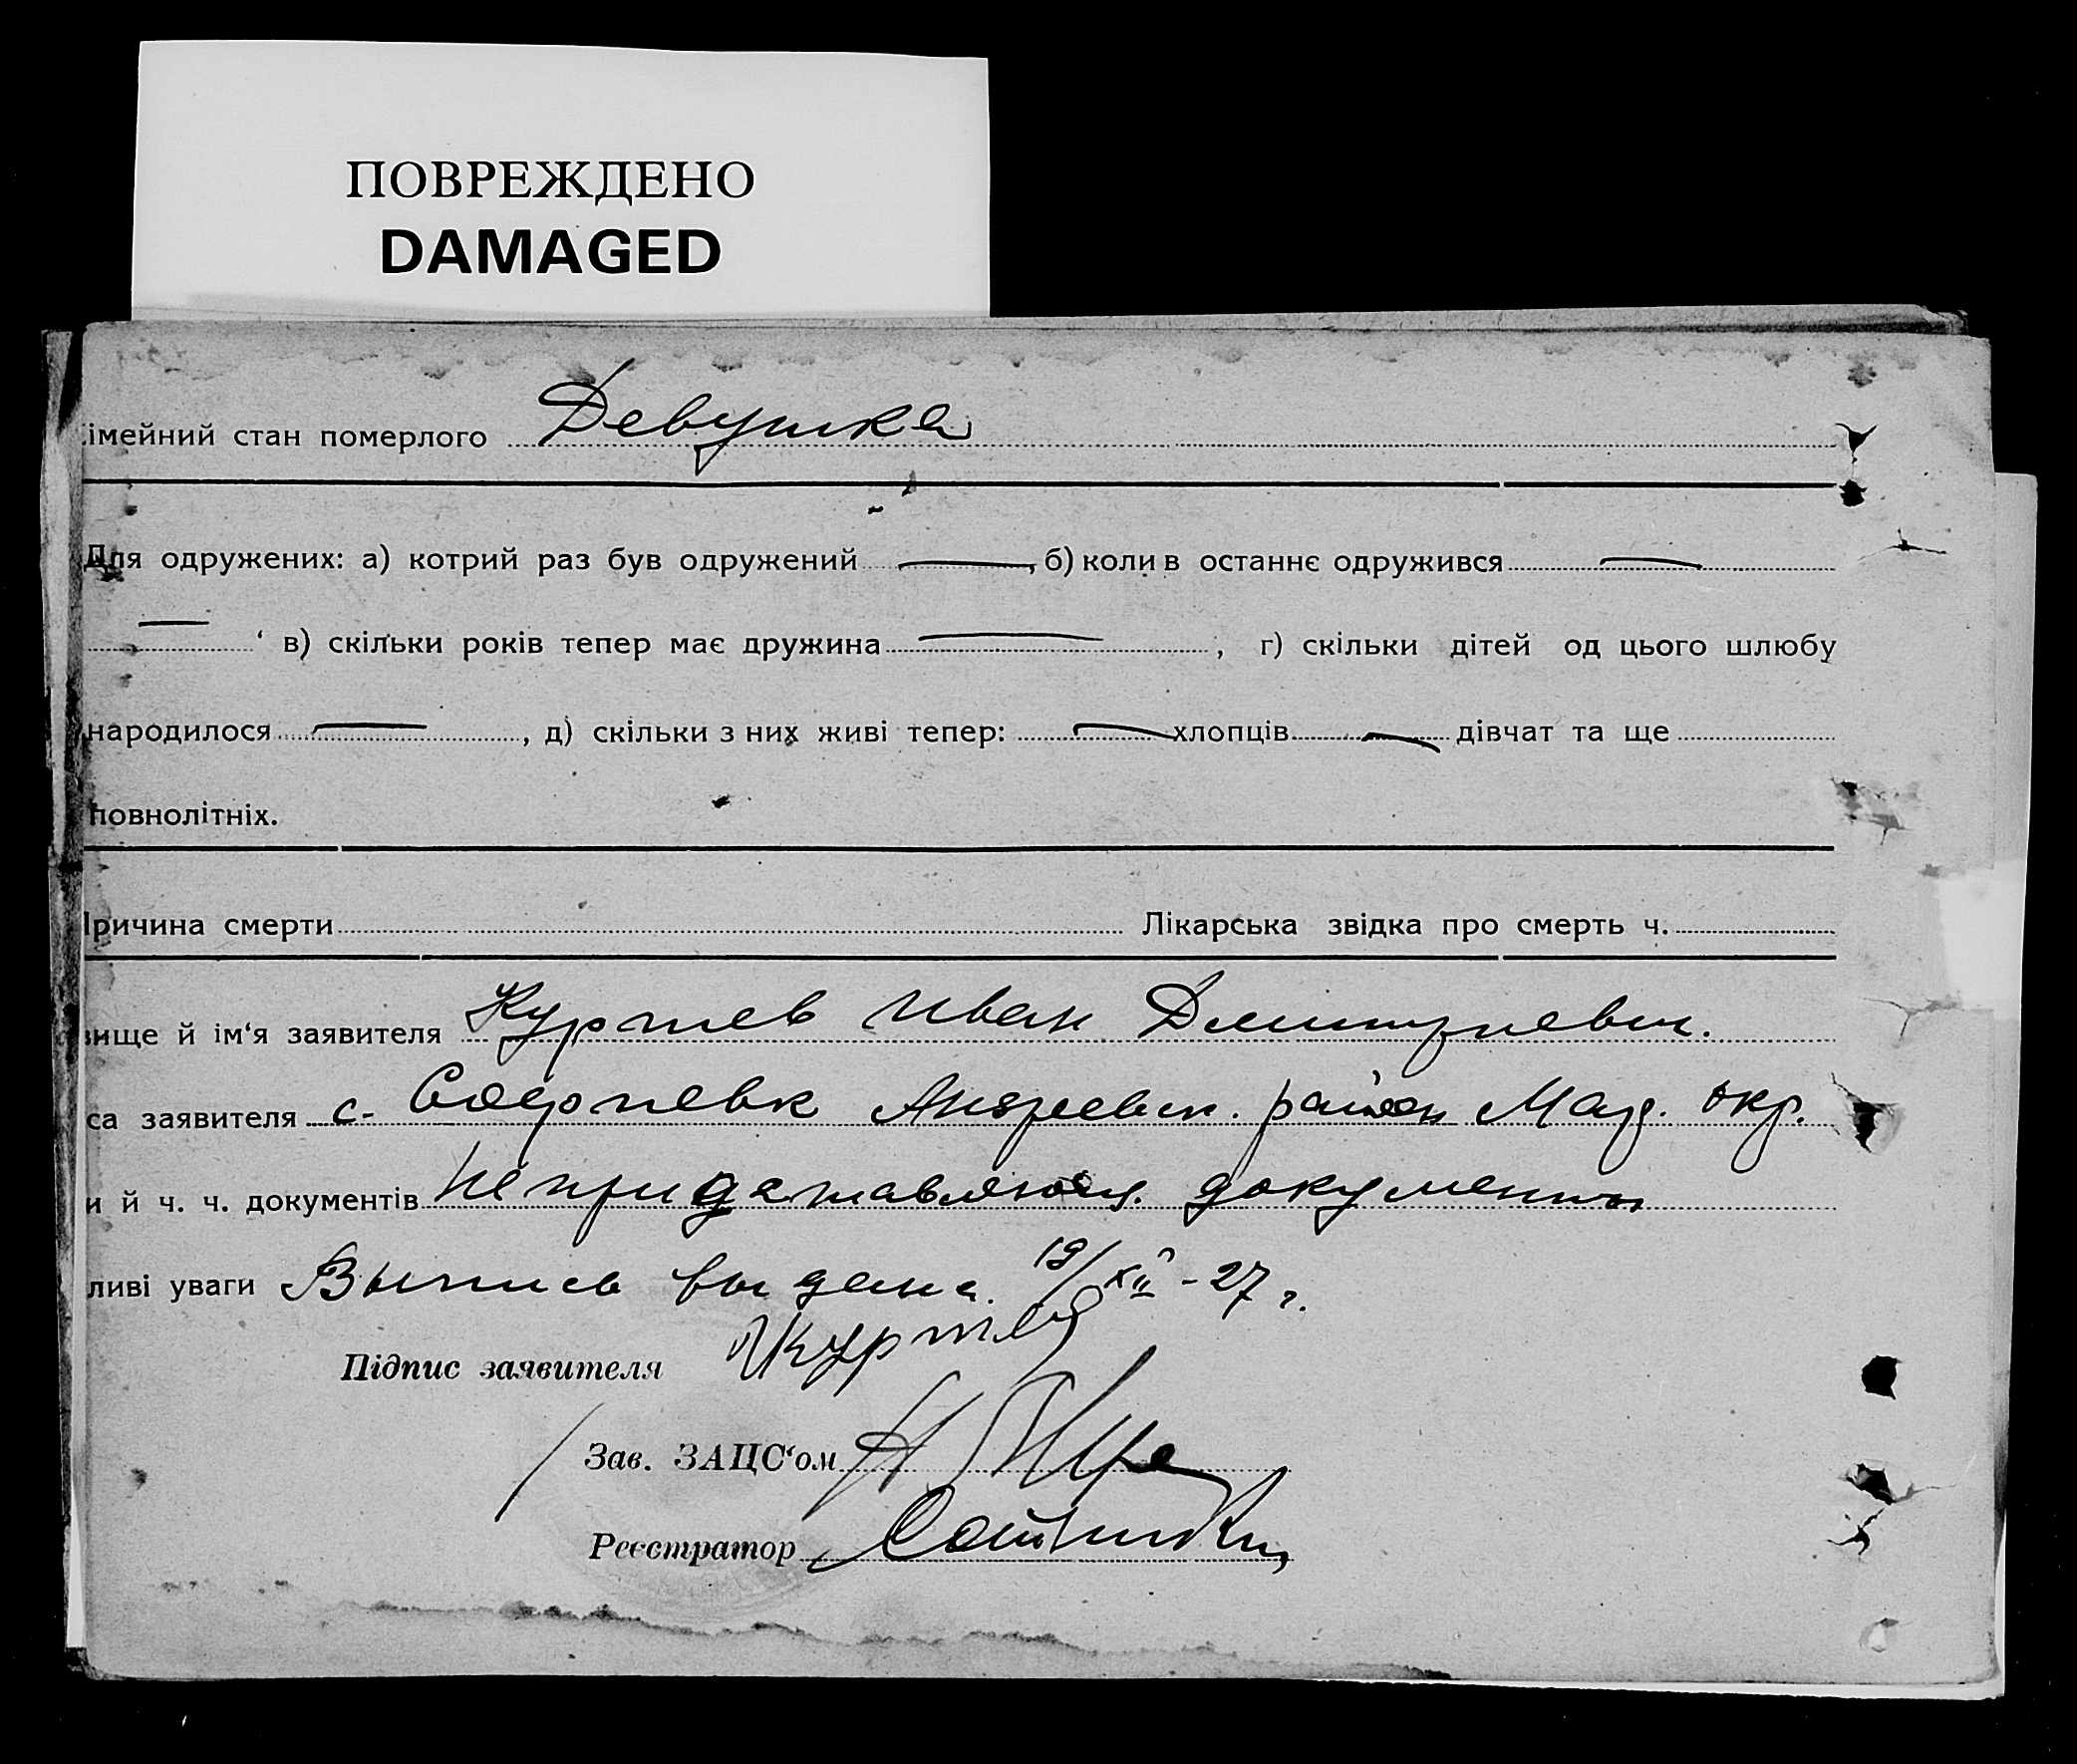 ПОВРЕЖДЕНО
DAMAGED
імейний стан померлого Девушка
Для одружених: а) котрий раз був одружений —, б) коли в останнє одружився —
— ‘ в) скільки років тепер має дружина —, г) скільки дітей од цього шлюбу
народилося —, д) скільки з них живі тепер: — хлопців — дівчат та ще
повнолітніх.
Причина смерти Лікарська звідка про смерть ч.
вище й ім‘я заявителя Куртев Иван Дмитриевич.
са заявителя с. Андреевск. район Мар. окр.
и й ч. ч. документів документы
ливі уваги Выпись выдана. 19/XII-27 г.
Підпис заявителя Куртев
Зав. ЗАЦС‘ом
Реєстратор